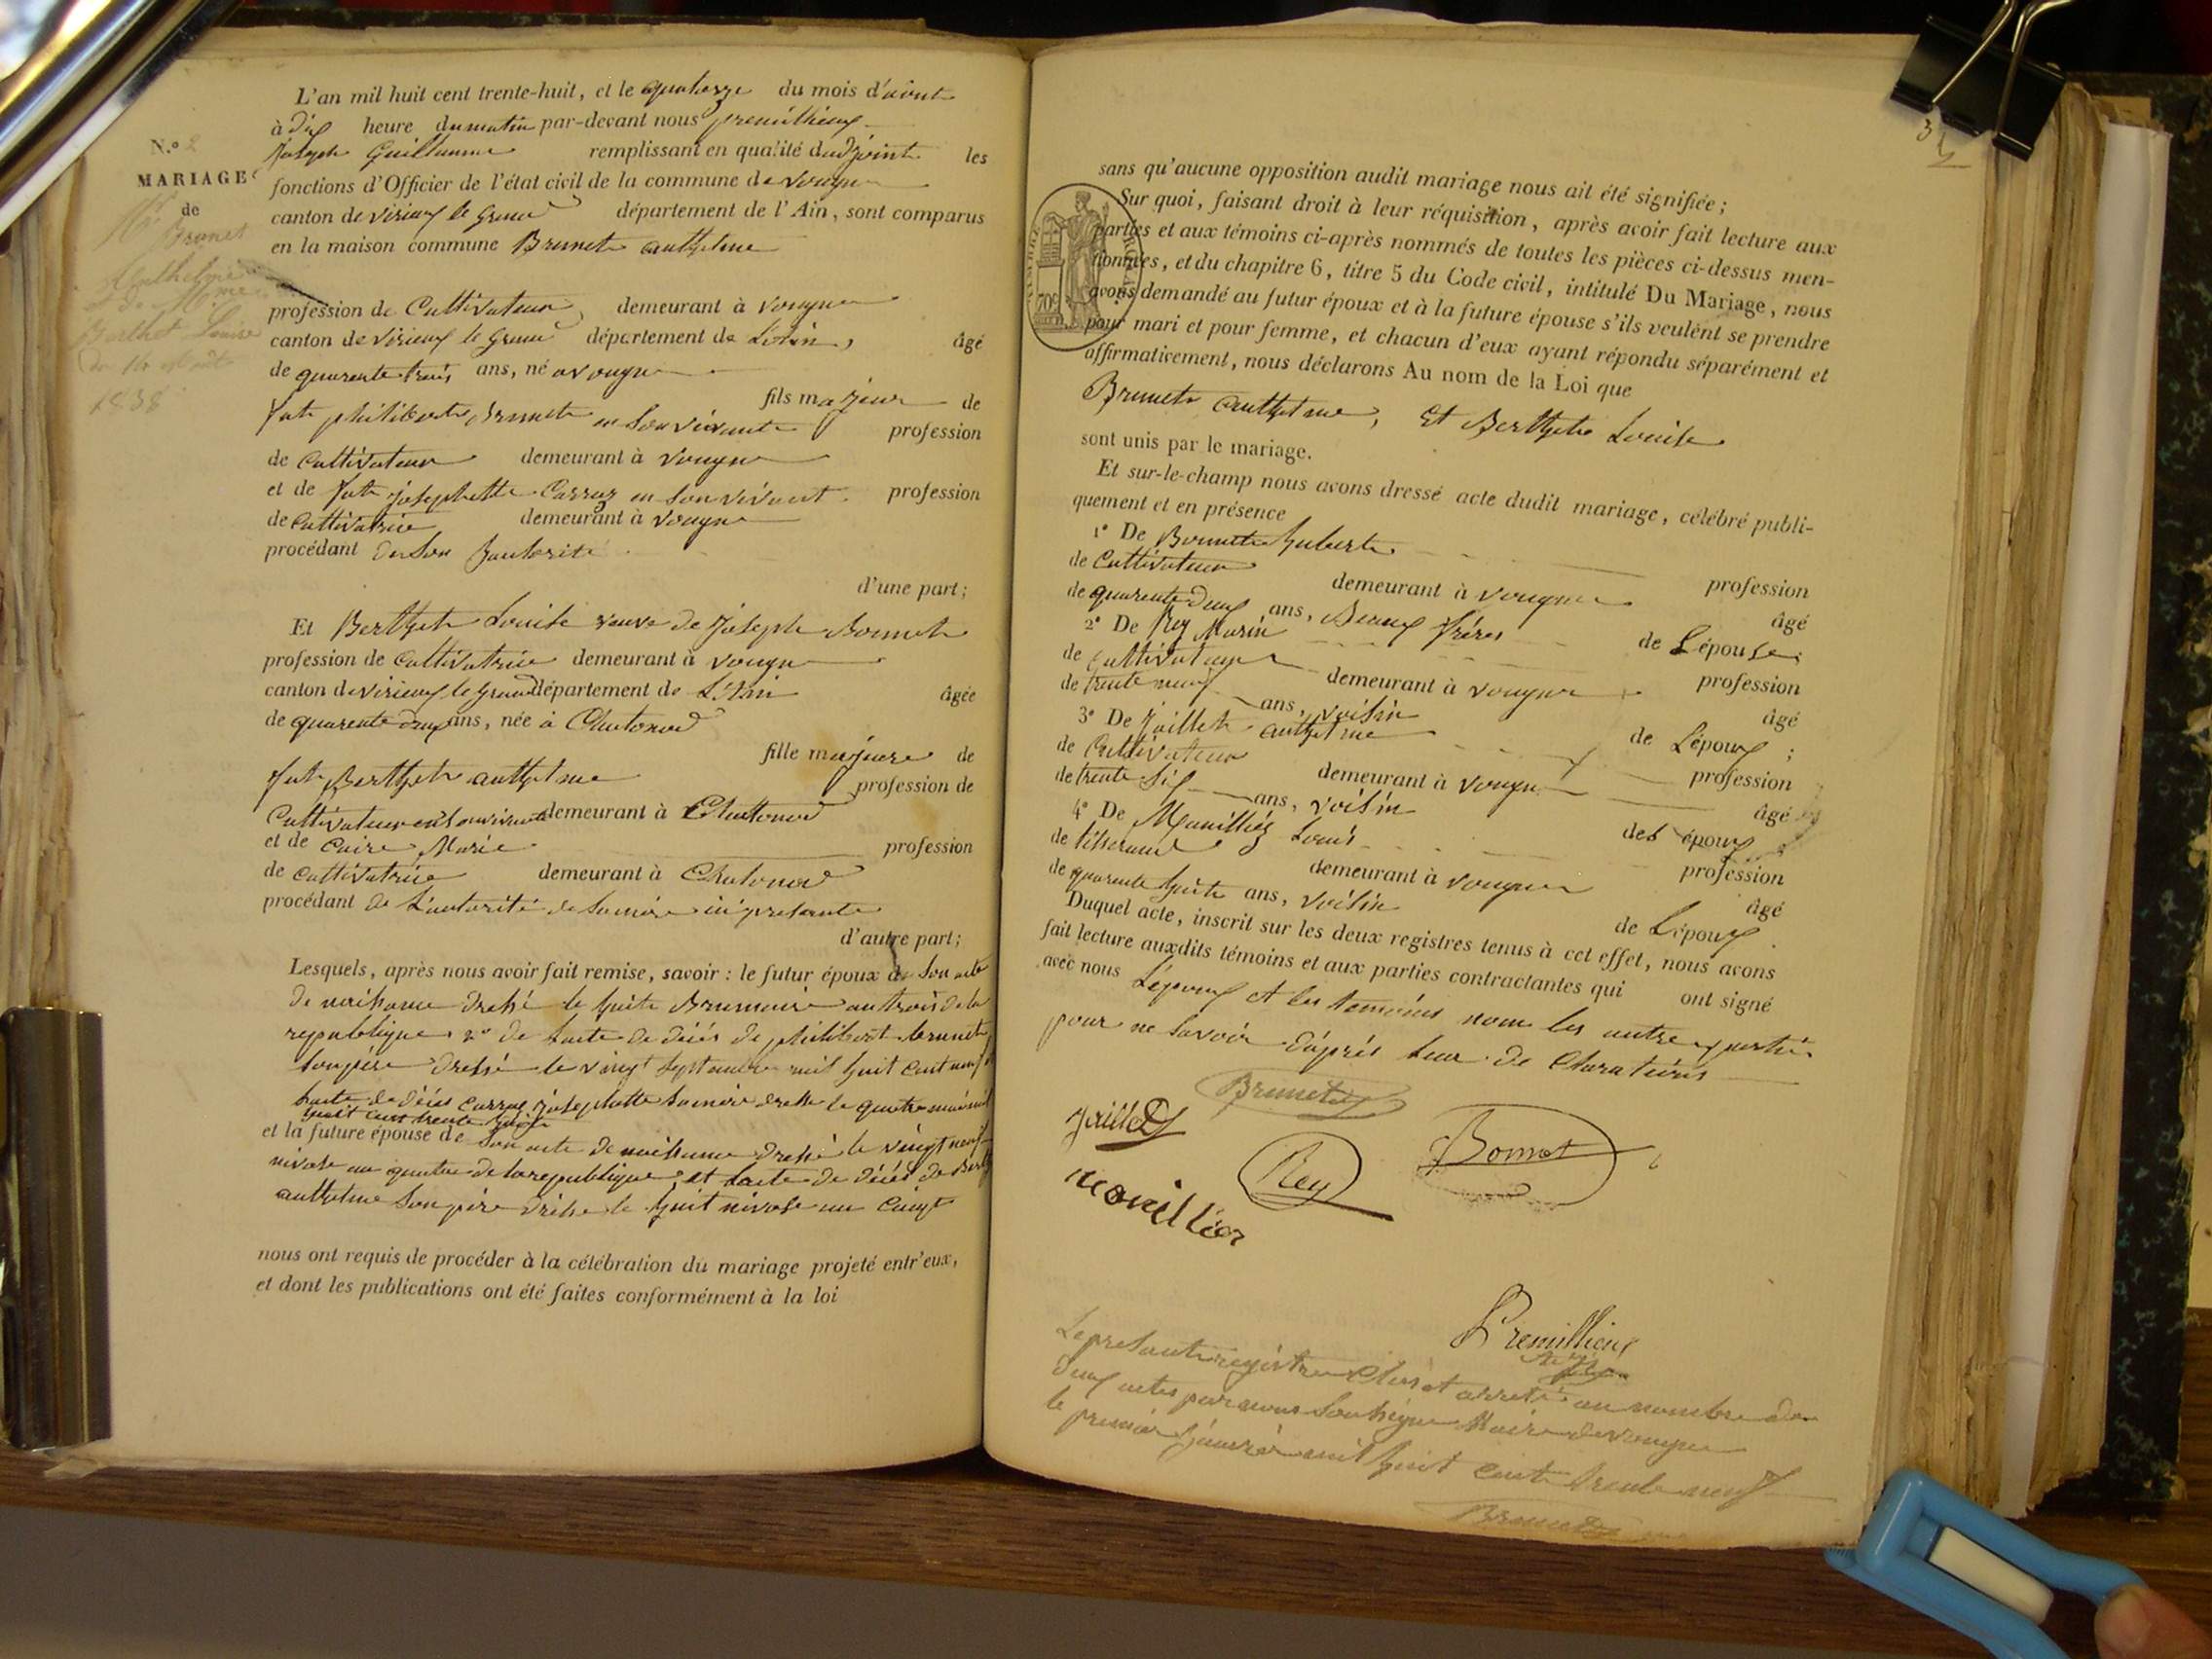 L'an mil huit cent trente-huit, et le quatorze du mois d'aout
à dix heure du matin par-devant nous premillieux
Joseph Guillaume remplissant en qualité dadjoint les
fonctions d'Officier de l'état civil de la commune de vougne
canton de virieux le grand département de l'Ain, sont comparus
en la maison commune Brunet anthelme
N.º 2
MARIAGE
de
Brunet
Anthelme
Berthet Louise
1838
profession de Cultivateur, demeurant à vougne
canton de virieux le grand département de L'Ain, âgé
de quarente trois ans, né a vougne
fils majeur de
fut philiberte Brunet en son vivant profession
de cultivateur demeurant à vougne
et de fut josephette Carraz en son vivant profession
de cultivatrice demeurant à vougne
procédant de son
d'une part;
Et Berthet Louise veuve de Joseph Bonnet
profession de cultivatrice demeurant à vougne
canton de virieux le grand département de L'Ain âgée
de quarente deux ans, née à Chatonod
fille majeure de
fut Berthet anthelme profession de
Cultivateur en son vivant demeurant à Chatonod
et de Caire Marie profession
de cultivatrice demeurant à Chatonod
procédant de L'autorité de sa mère ici présente
d'autre part;
Lesquels, après nous avoir fait remise, savoir : le futur époux de son acte
de naissance dressé le huite Brumaire an trois de la
republique 2º de lacte de décés de philibert brunet
son père dressé le vingt septembre mil huit cent neuf
lacte de décés carraz josephette sa mère dressé le quatre
huit cent trente
et la future épouse de son acte de naissance dressé le vingt neuf
nivose an quatre de la republique et lacte de décés de
anthelme son père dressé le huit nivose an cinq
nous ont requis de procéder à la célébration du mariage projeté entr'eux,
et dont les publications ont été faites conformément à la loi
sans qu'aucune opposition audit mariage nous ait été signifiée;
Sur quoi, faisant droit à leur réquisition, après avoir fait lecture aux
parties et aux témoins ci-après nommés de toutes les pièces ci-dessus men-
tionnées, et du chapitre 6, titre 5 du Code civil, intitulé Du Mariage, nous
avons demandé au futur époux et à la future épouse s'ils veulent se prendre
pour mari et pour femme, et chacun d'eux ayant répondu séparément et
affirmativement, nous déclarons Au nom de la Loi que
TIMBRE ROYAL
70c
Brunet anthelme, Et Berthet Louise
sont unis par le mariage.
Et sur-le-champ nous avons dressé acte dudit mariage, célébré publi-
quement et en présence
1º De Bonnet hubert profession
de Cultivateur demeurant à vougne âgé
de quarente deux ans, Beaux frères de Lépouse;
2º De Rey Marin profession
de cultivateur demeurant à vougne âgé
de trente neuf ans, voisin de Lépoux;
3º De Juillet anthelme profession
de Cultivateur demeurant à vougne âgé
de trente six ans, voisin des époux
4º De Mouilliez Louis profession
de tisserand demeurant à vougne âgé
de quarente huite ans, voisin de Lépoux
Duquel acte, inscrit sur les deux registres tenus à cet effet, nous avons
fait lecture auxdits témoins et aux parties contractantes qui ont signé
avec nous Lépoux et les temoins nom les autre partis
pour ne savoir d'après leur de clarations
Brunet
Juillet
Rey
Bonnet
Premillieux
Le présente registre Clos et arreté au nombre de
deux actes par nous soussigne Maire de vougne
le premier janvier mil huit cent trente neuf
Brunet